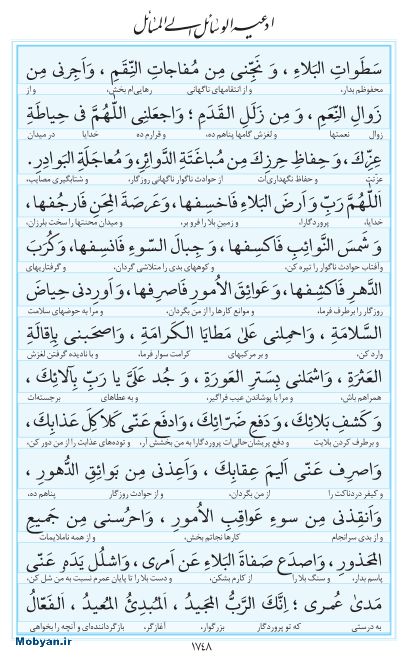 ادعیه الوسائل الی المسائل
سَطَواتِ البَلاءِ ، وَ نَجِّنى مِن مُفاجاتِ النِّقَمِ ، وَاَجِرنى مِن
محفوظم بدار، و از انتقامهای ناگهانی رهایی‌ام بخش، و از
زَوالِ النِّعَمِ ، وَ مِن زَلَلِ القَدَمِ ؛ وَاجعَلنِى اللّٰهُمَّ فى حِياطَةِ
زوال نعمتها و لغزش گامها پناهم ده، و قرارم ده خدایا در میدان
عِزِّكَ ، وَ حِفاظِ حِرزِكَ مِن مُباغَتَةِ الدَّوائِرِ، وَ مُعاجَلَةِ البَوادِرِ.
عزّتت و حفاظ نگهداری‌ات از حوادث ناگوار ناگهانی روزگار، و شتابگیری مصایب.
اَللّٰهُمَّ رَبِّ وَ اَرضَ البَلاءِ فَاخسِفها، وَ عَرصَةَ المِحَنِ فَارجُفها،
خدایا، پروردگارا، و زمین بلا را فرو بر، و میدان محنتها را سخت بلرزان،
وَ شَمسَ النَّوائِبِ فَاكسِفها ، وَ جِبالَ السّوءِ فَانسِفها، وَ كُرَبَ
و آفتاب حوادث ناگوار را تیره کن، و کوههای بدی را متلاشی گردان، و گرفتاریهای
الدَّهرِ فَاكشِفها ، وَ عَوائِقَ الأُمورِ فَاصرِفها، وَ اَورِدنى حِياضَ
روزگار را برطرف فرما، و موانع کارها را از من بگردان، و مرا به حوضهای سلامت
السَّلامَةِ ، وَاحمِلنى عَلىٰ مَطايَا الكَرامَةِ ، وَاصحَبنى بِاِقالَةِ
وارد کن، و بر مرکبهای کرامت سوار فرما، و با نادیده گرفتن لغزش
العَثرَةِ ، وَاشمَلنى بِسَترِ العَورَةِ ، وَ جُد عَلَىَّ يا رَبِّ بِآلائِكَ ،
همراهم باش، و مرا با پوشاندن عیب فراگیر، و به عطاهای برجسته‌ات
وَ كَشفِ بَلائِكَ ، وَ دَفعِ ضَرّائِكَ، وَادفَع عَنّى كَلاكِلَ عَذابِكَ ،
و برطرف کردن بلایت و دفع پریشان‌حالی‌ات پروردگارا به من بخشش آر، و توده‌های عذابت را از من دور کن،
وَاصرِف عَنّى اَليمَ عِقابِكَ ، وَاَعِذنى مِن بَوائِقِ الدُّهورِ ،
و کیفر دردناکت را از من بگردان، و از حوادث روزگار پناهم ده،
وَاَنقِذنى مِن سوءِ عَواقِبِ الأُمورِ ، وَاحرُسنى مِن جَميعِ
و از بدی سرانجام کارها نجاتم بخش، و از همه ناملایمات
المَحذورِ ، وَاصدَع صَفاةَ البَلاءِ عَن اَمرى ، وَاشلُل يَدَهُ عَنّى
پاسم بدار، و سنگ بلا را از کارم بشکن، و دست بلا را تا پایان عمرم نسبت به من شل کن،
مَدىٰ عُمرى ؛ اِنَّكَ الرَّبُّ المَجيدُ ، اَلمُبدِئُ المُعيدُ ، الفَعّالُ
به درستی که تو پروردگار بزرگوار، آغازگر، بازگرداننده‌ای و آنچه را بخواهی
۱۷۴۸
Mobyan.ir